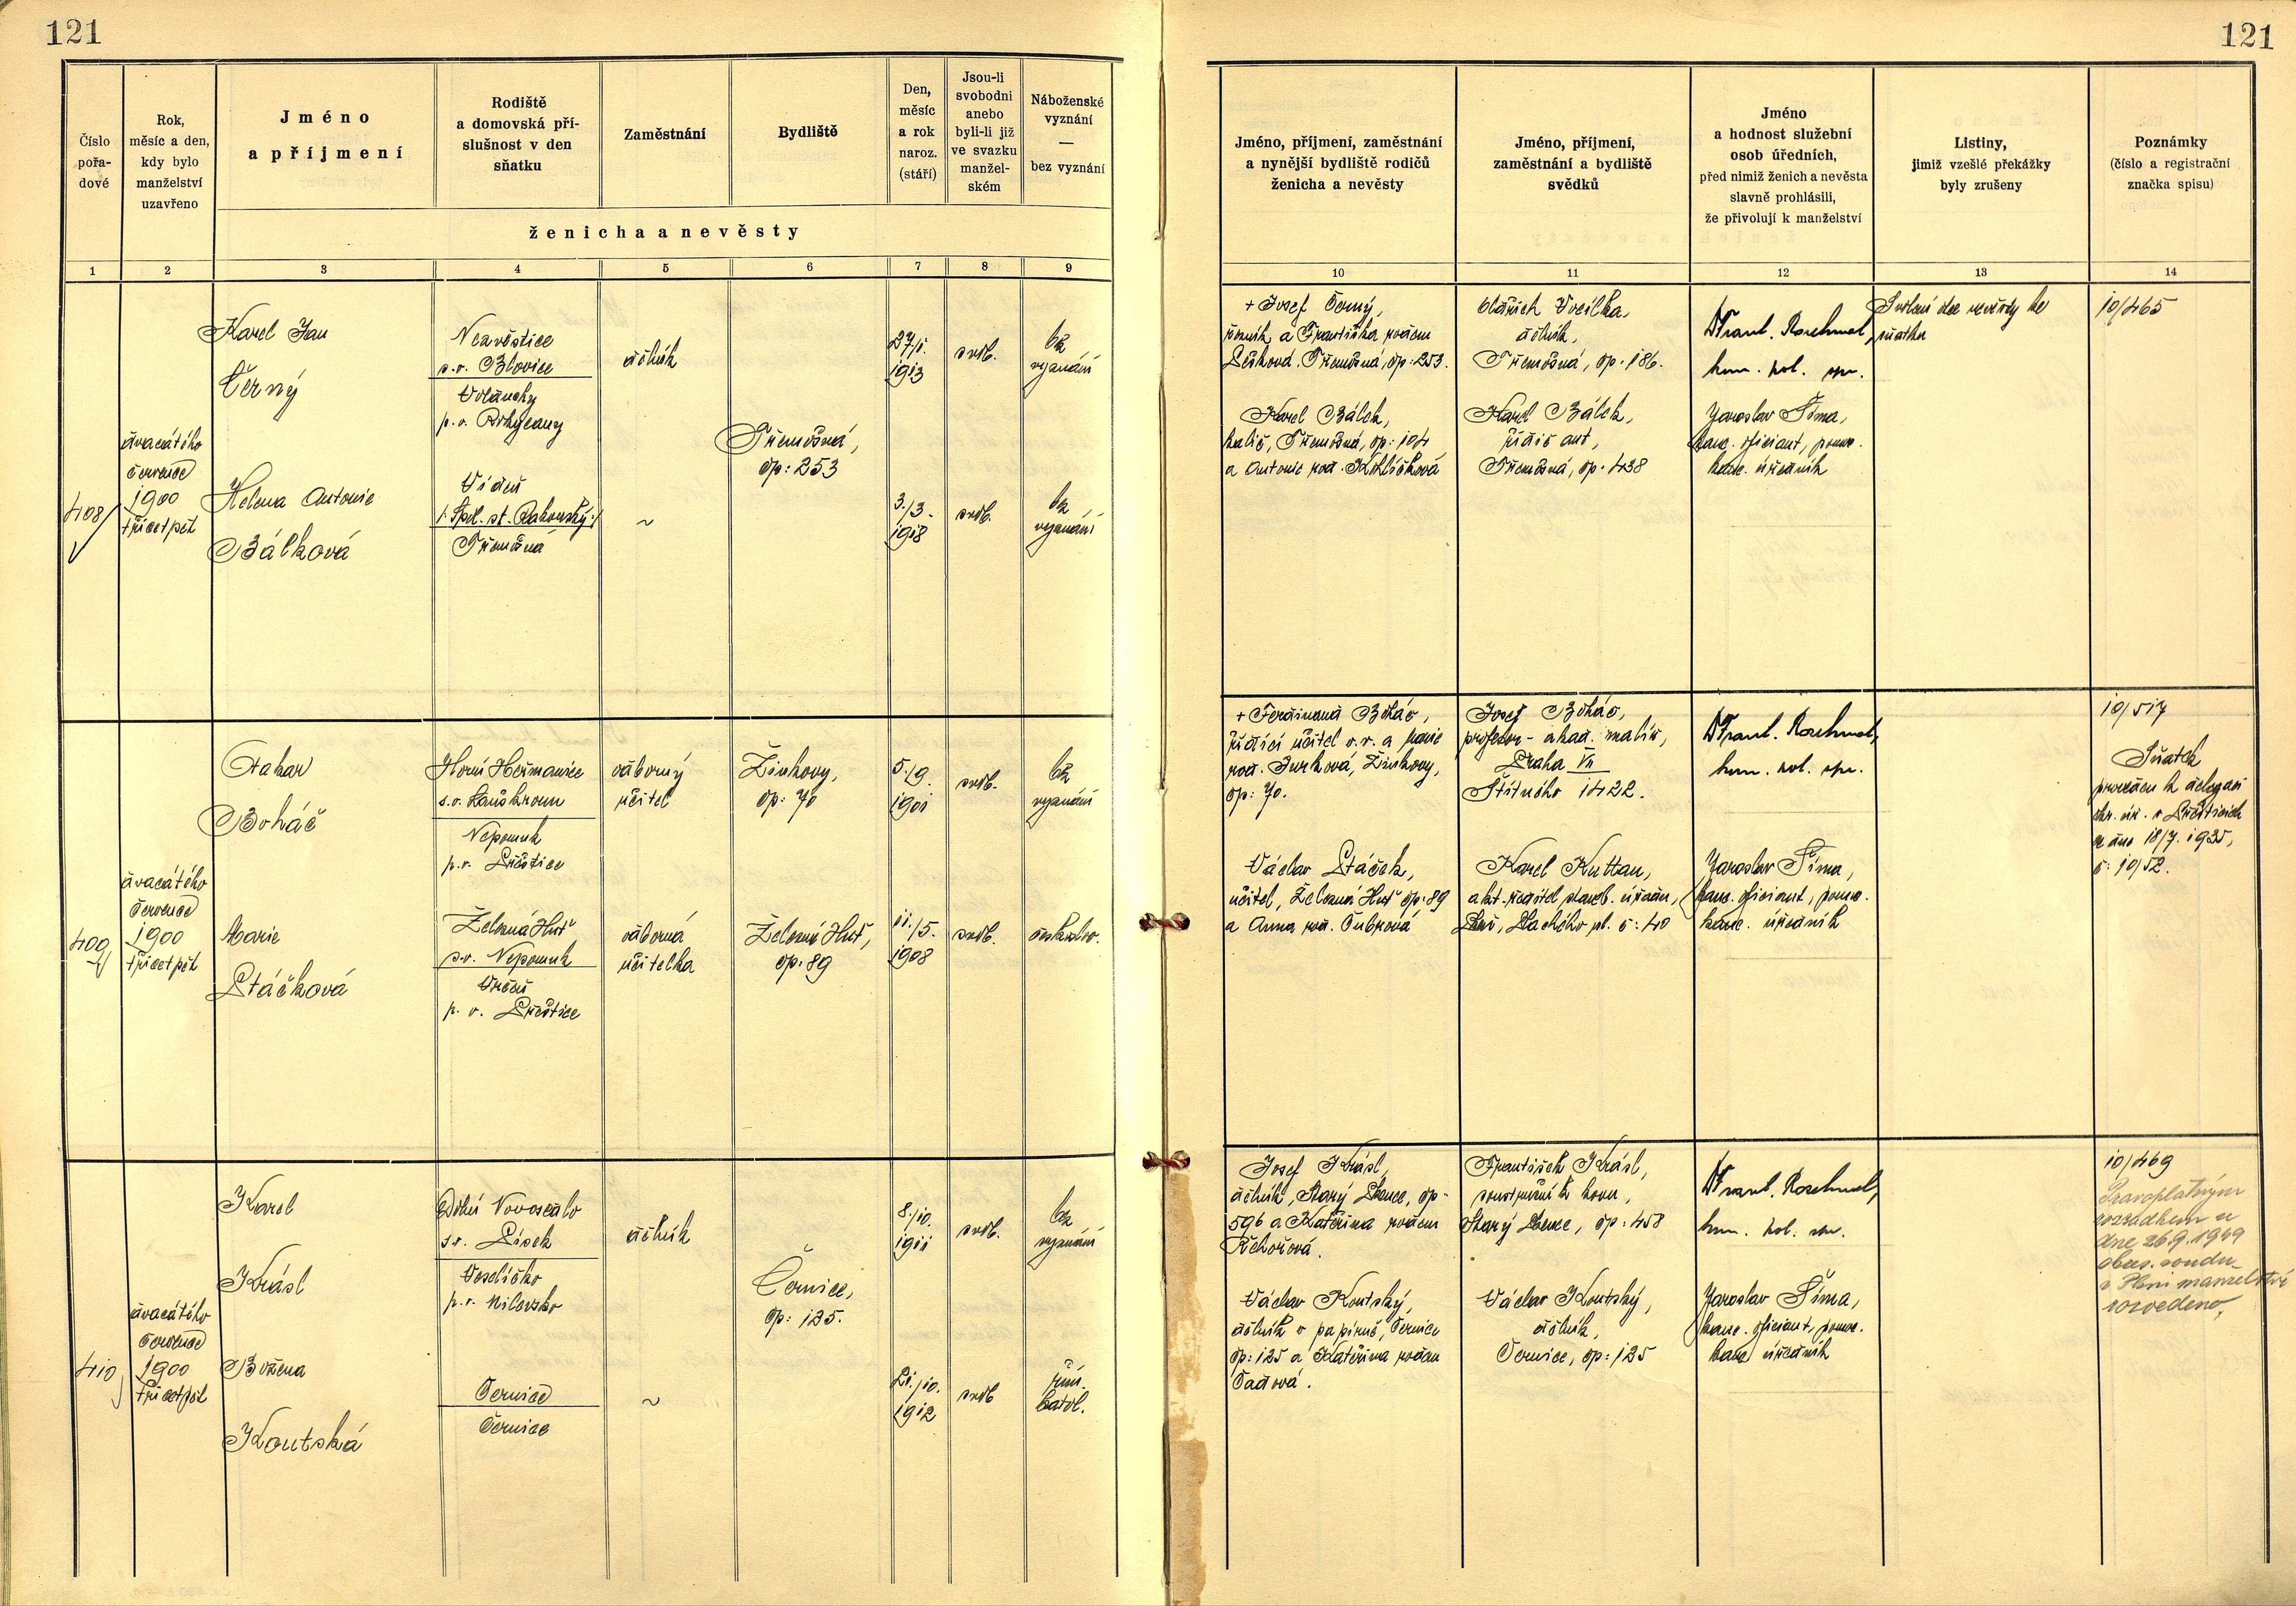 121
121
Číslo
pořa-
dové
Rok,
měsíc a den,
kdy bylo
manželství
uzavřeno
Jméno
a příjmení
Rodiště
a domovská pří-
slušnost v den
sňatku
Zaměstnání
Bydliště
Den,
měsíc
a rok
naroz.
(stáří)
Jsou-li
svobodni
anebo
byli-li již
ve svazku
manžel-
ském
Náboženské
vyznání
—
bez vyznání
ženicha a nevěsty
Jméno, příjmení, zaměstnání
a nynější bydliště rodičů
ženicha a nevěsty
Jméno, příjmení,
zaměstnání a bydliště
svědků
Jméno
a hodnost služební
osob úředních,
před nimiž ženich a nevěsta
slavně prohlásili,
že přivolují k manželství
Listiny,
jimiž vzešlé překážky
byly zrušeny
Poznámky
(číslo a registrační
značka spisu)
1
2
3
4
5
6
7
8
9
10
11
12
13
14
408
dvacátého
července
1900
třicetpět
Karel Jan
Černý
Nezvěstice
s.o. Blovice
p.o. Rokycany
dělník
Třemošná,
čp: 253
27/1.
1913
svob.
bez
vyznání
Helena Antonie
Bálková
Vídeň
Třemošná
~
3./3.
1918
svob.
bez
vyznání
+ Josef Černý,
a Františka rozen
Třemošná, čp: 253.
Karel Bálek,
Třemošná, čp: 104
a Antonie roz.
Oldřich
dělník,
Třemošná, čp. 186.
Karel Bálek,
řidič aut,
Třemošná, čp. 438
Jaroslav Šíma,
kanc. oficiant, pomoc.
kanc. úředník
10/465
409
dvacátého
července
1900
třicetpět
Otakar
Boháč
Horní Heřmanice
s.o. Lanškroun
Nepomuk
p.o. Přeštice
odborný
učitel
Žinkovy,
čp: 70
5./9.
1901
svob.
bez
vyznání
Marie
Ptáčková
Železná Huť
s.o. Nepomuk
Vrčeň
p. o. Přeštice
odborná
učitelka
Železná Huť,
čp: 89
11./5.
1908
svob.
českoslov.
+ Ferdinand Boháč,
řídící učitel v.v. a Marie
roz. Jurková, Žinkovy,
čp: 70.
Václav Ptáček,
učitel, Železná Huť čp: 89
a Anna roz. Čubrová
Josef Boháč,
profesor - akad. malíř,
Praha VII
Štítného 1422.
Karel Kuttan,
Plzeň, Plachého ul. č: 40
Jaroslav Šíma,
kanc. oficiant, pomoc.
kanc. úředník
10/517
Sňatek
proveden k delegaci
okr. úř. v Přešticích
ze dne 18/7. 1935,
č: 10/52.
410
dvacátého
července
1900
třicetpět
Karel
Krásl
Dolní Novosedlo
s.o. Písek
Veselíčko
p.o. Milevsko
dělník
Černice,
čp: 125.
8./10.
1911
svob.
bez
vyznání
Božena
Koutská
Černice
Černice
~
21./10.
1912
svob
řím.
katol.
Josef Krásl,
dělník, Starý Plzenec, čp-
596 a Kateřina rozen
Řehořová.
Václav Koutský,
dělník v papírně, Černice
čp: 125 a Kateřina rozen
Čadová.
František Krásl,
soustružník kovu,
Starý Plzenec, čp: 458
Václav Koutský,
dělník,
Černice, čp: 125
Jaroslav Šíma,
kanc. oficiant, pomoc.
kanc úředník
10/469
Pravoplatným
rozsudkem ze
dne 26.9.1949
okres. soudu
v Plzni manželství
rozvedeno.